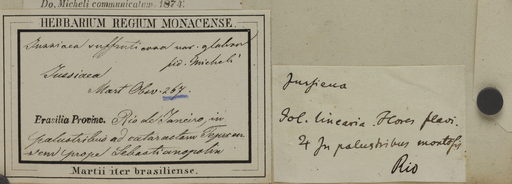 Do. Micheli communicatum. 1874.
HERBARIUM REGIUM MONACENSE.
Jussiaea suffruticosa var. glabra
fid. Micheli
Jussiaea
Mart Obs. 257.
Brasilia Provinc. Rio de Janeiro, in
paludibus ad cataractam
prope Sebastianopolin
Martii iter brasiliense.
Jussieua
Fol. linearia. Flores flavi.
♃ In palustribus montosis
Rio